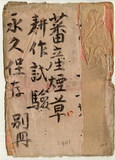 蕃座煙草
耕作試験
永久保存 別冊